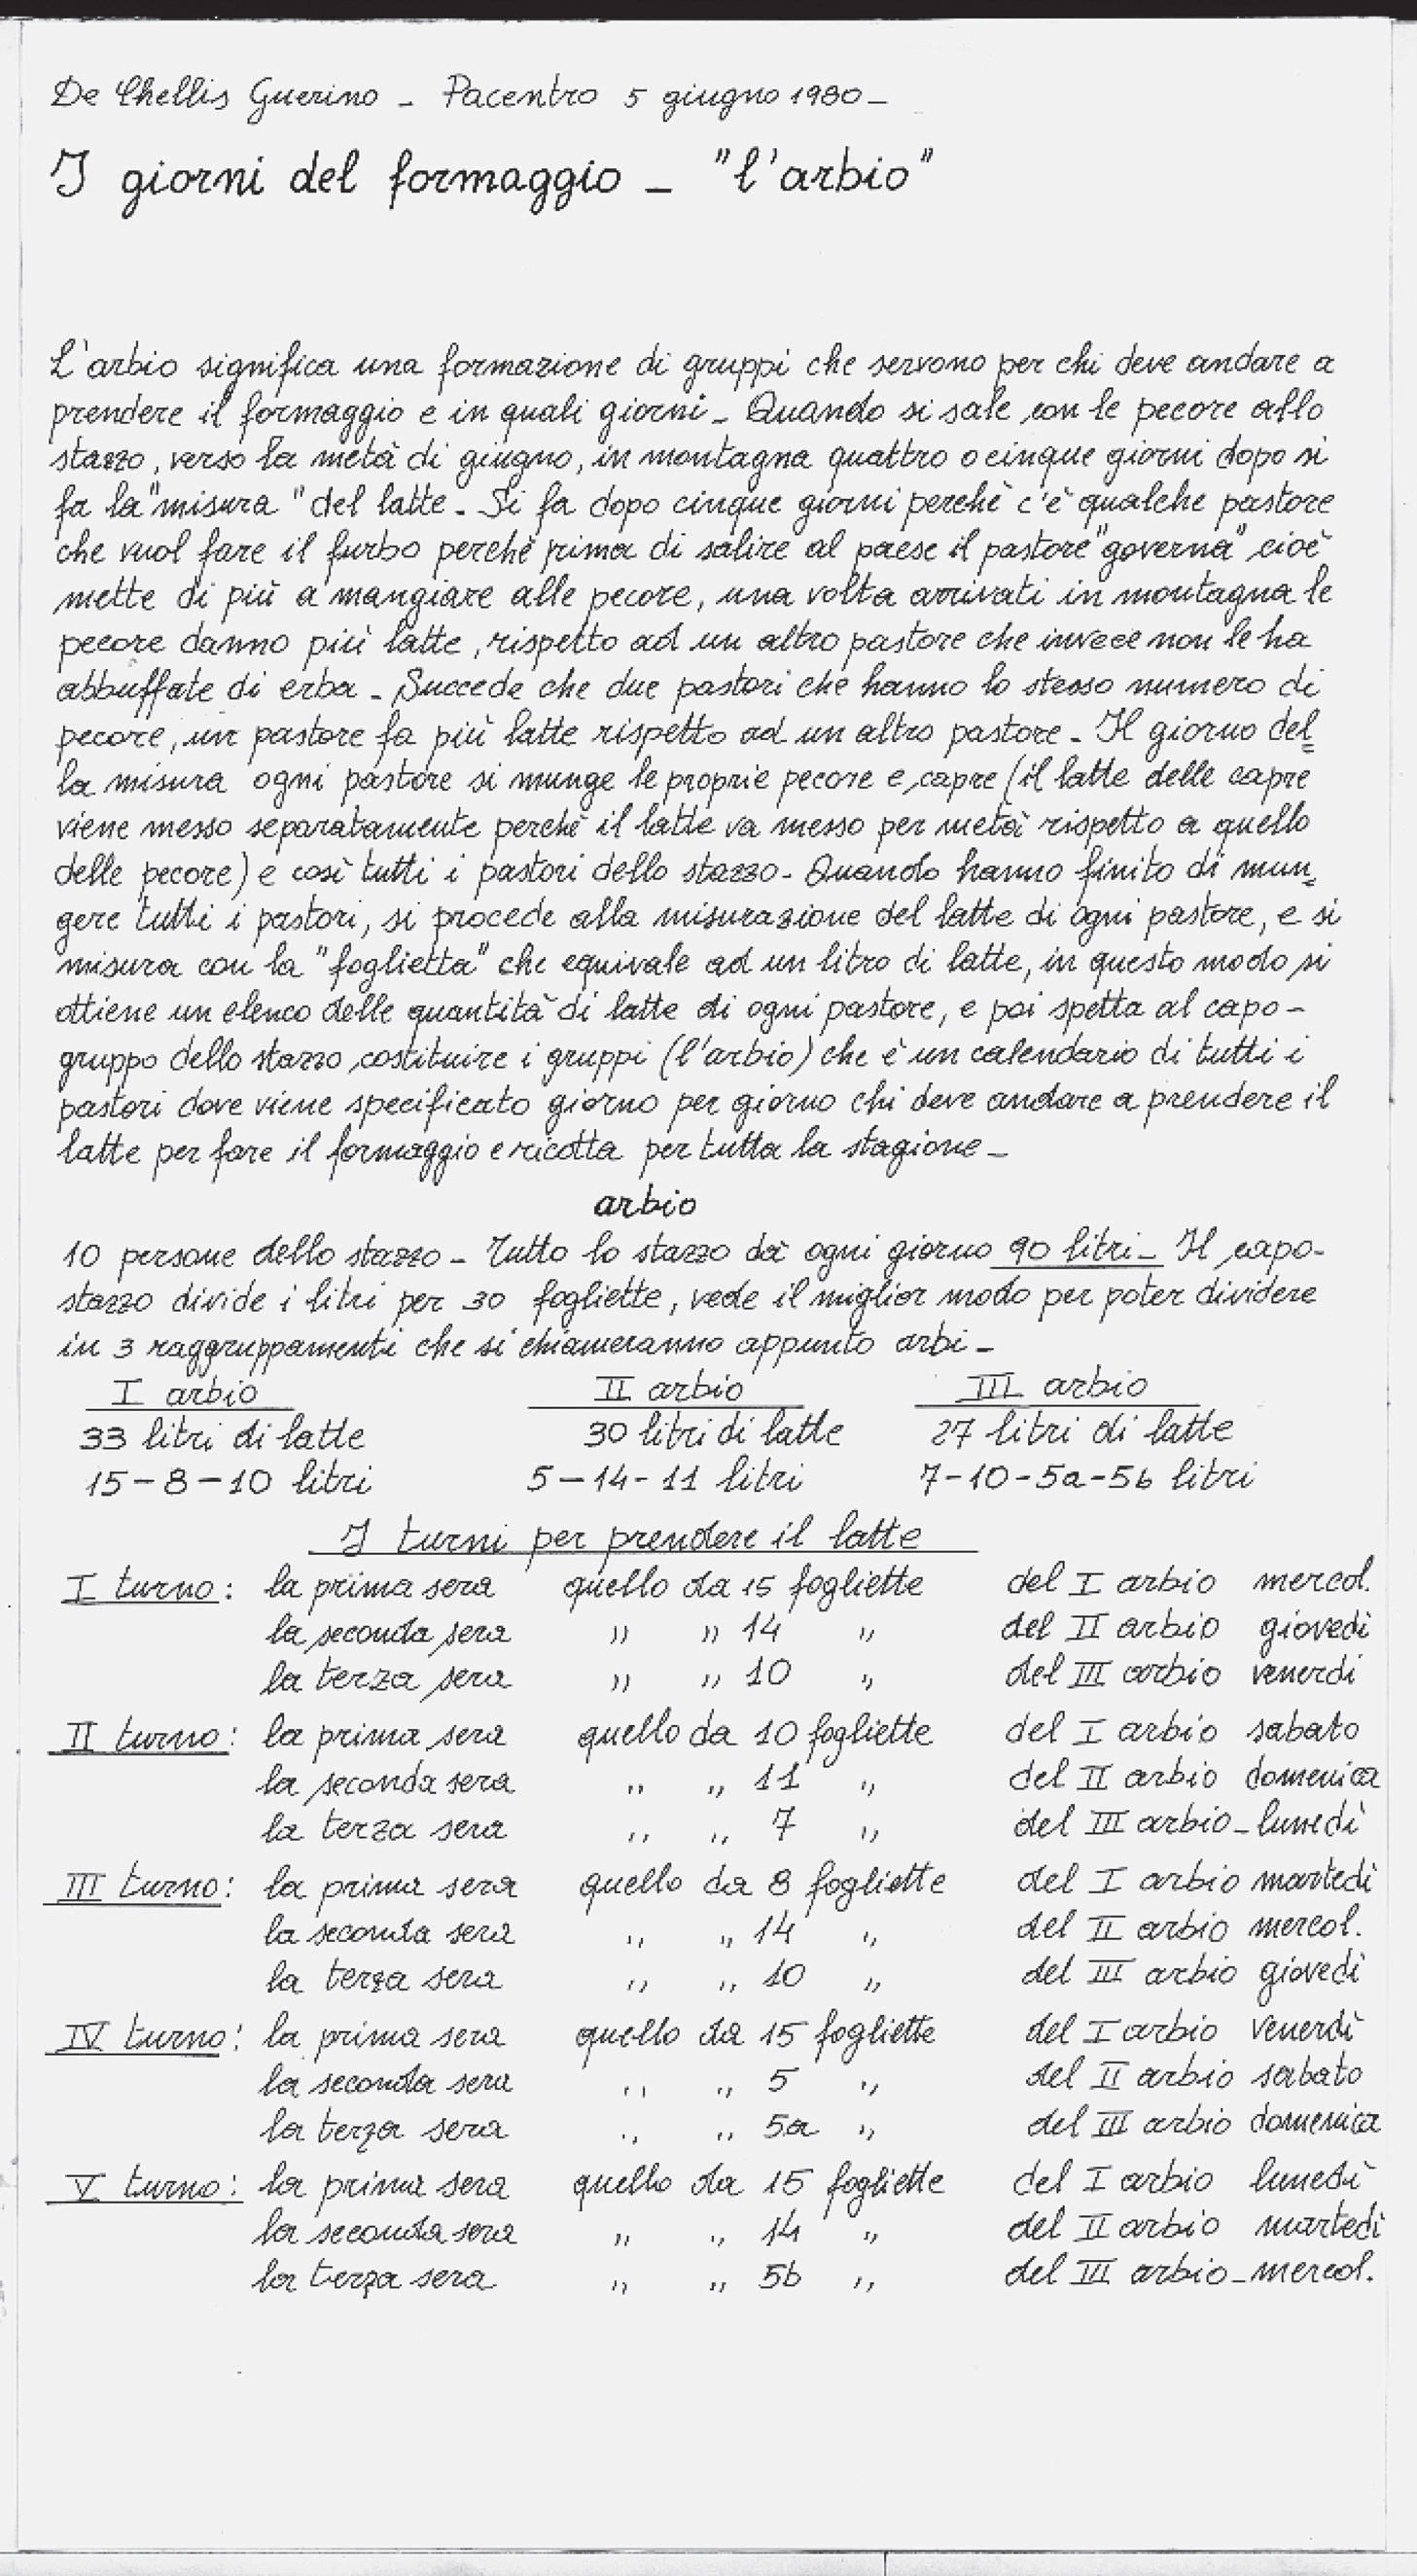 De Chellis Guerino - Pacentro 5 giugno 1980 -
I giorni del formaggio - "l'arbio"
L'arbio significa una formazione di gruppi che servono per chi deve andare a
prendere il formaggio e in quali giorni - Quando si sale con le pecore allo
stazzo, verso la metà di giugno, in montagna quattro o cinque giorni dopo si
fa la "misura" del latte - Si fa dopo cinque giorni perchè c'è qualche pastore
che vuol fare il furbo perchè prima di salire al paese il pastore "governa" cioè
mette di più a mangiare alle pecore, una volta arrivati in montagna le
pecore danno più latte, rispetto ad un altro pastore che invece non le ha
abbuffate di erba - Succede che due pastori che hanno lo stesso numero di
pecore, un pastore fa più latte rispetto ad un altro pastore - Il giorno del=
la misura ogni pastore si munge le proprie pecore e capre (il latte delle capre
viene messo separatamente perchè il latte va messo per metà rispetto a quello
delle pecore) e così tutti i pastori dello stazzo - Quando hanno finito di mun=
gere tutti i pastori, si procede alla misurazione del latte di ogni pastore, e si
misura con la "foglietta" che equivale ad un litro di latte, in questo modo si
ottiene un elenco delle quantità di latte di ogni pastore, e poi spetta al capo-
gruppo dello stazzo costituire i gruppi (l'arbio) che è un calendario di tutti i
pastori dove viene specificato giorno per giorno chi deve andare a prendere il
latte per fare il formaggio e ricotta per tutta la stagione -
arbio
10 persone dello stazzo - Tutto lo stazzo dà ogni giorno 90 litri - Il capo-
stazzo divide i litri per 30 fogliette, vede il miglior modo per poter dividere
in 3 raggruppamenti che si chiameranno appunto arbi -
I arbio II arbio III arbio
33 litri di latte 30 litri di latte 27 litri di latte
15-8-10 litri 5-14-11 litri 7-10-5a-5b litri
I turni per prendere il latte
I turno: la prima sera quello da 15 fogliette del I arbio mercol.
la seconda sera " " 14 " del II arbio giovedì
la terza sera " " 10 " del III arbio venerdì
II turno: la prima sera quello da 10 fogliette del I arbio sabato
la seconda sera " " 11 " del II arbio domenica
la terza sera " " 7 " del III arbio - lunedì
III turno: la prima sera quello da 8 fogliette del I arbio martedì
la seconda sera " " 14 " del II arbio mercol.
la terza sera " " 10 " del III arbio giovedì
IV turno: la prima sera quello da 15 fogliette del I arbio venerdì
la seconda sera " " 5 " del II arbio sabato
la terza sera " " 5a " del III arbio domenica
V turno: la prima sera quello da 15 fogliette del I arbio lunedì
la seconda sera " " 14 " del II arbio martedì
la terza sera " " 5b " del III arbio - mercol.